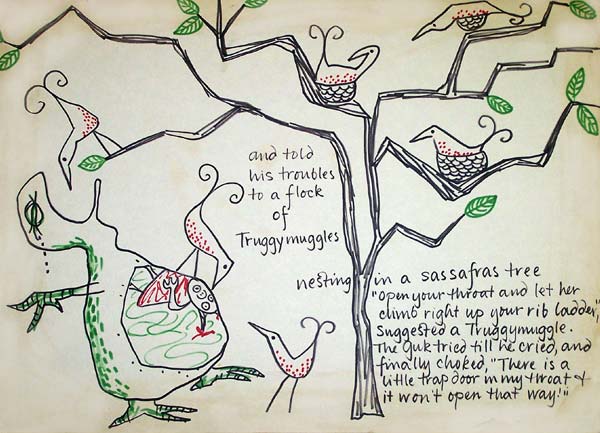 and told
his troubles
to a flock
of
Truggymuggles
nesting in a sassafras tree
"Open your throat and let her
climb right up your rib ladder,"
suggested a Truggymuggle.
The Guk tried till he cried, and
finally choked, "There is a
little trap door in my throat &
it won't open that way!"